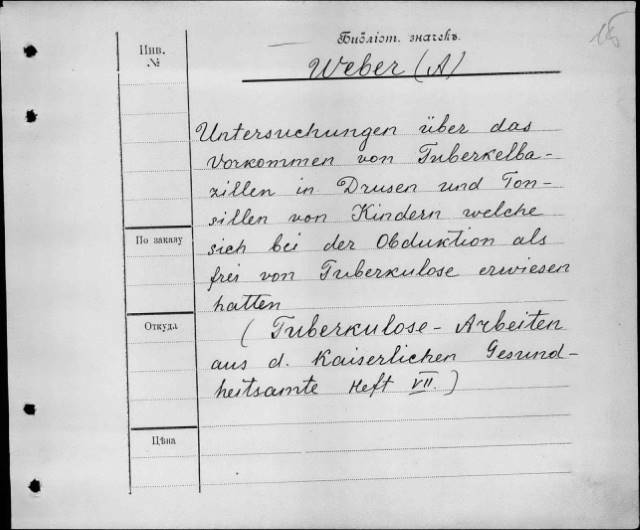 15
Библіот. значекъ.
Инв.
№
Weber (A)
Untersuchungen über das
Vorkommen von Tuberkelba-
zillen in Drusen und Ton-
sillen von Kindern welche
По заказу
sich bei der Obduktion als
frei von Tuberkulose erwiesen
hatten
Откуда
(Tuberkulose- Arbeiten
aus d. Kaiserlichen Gesund-
heitsamte Heft VII.)
Цѣна